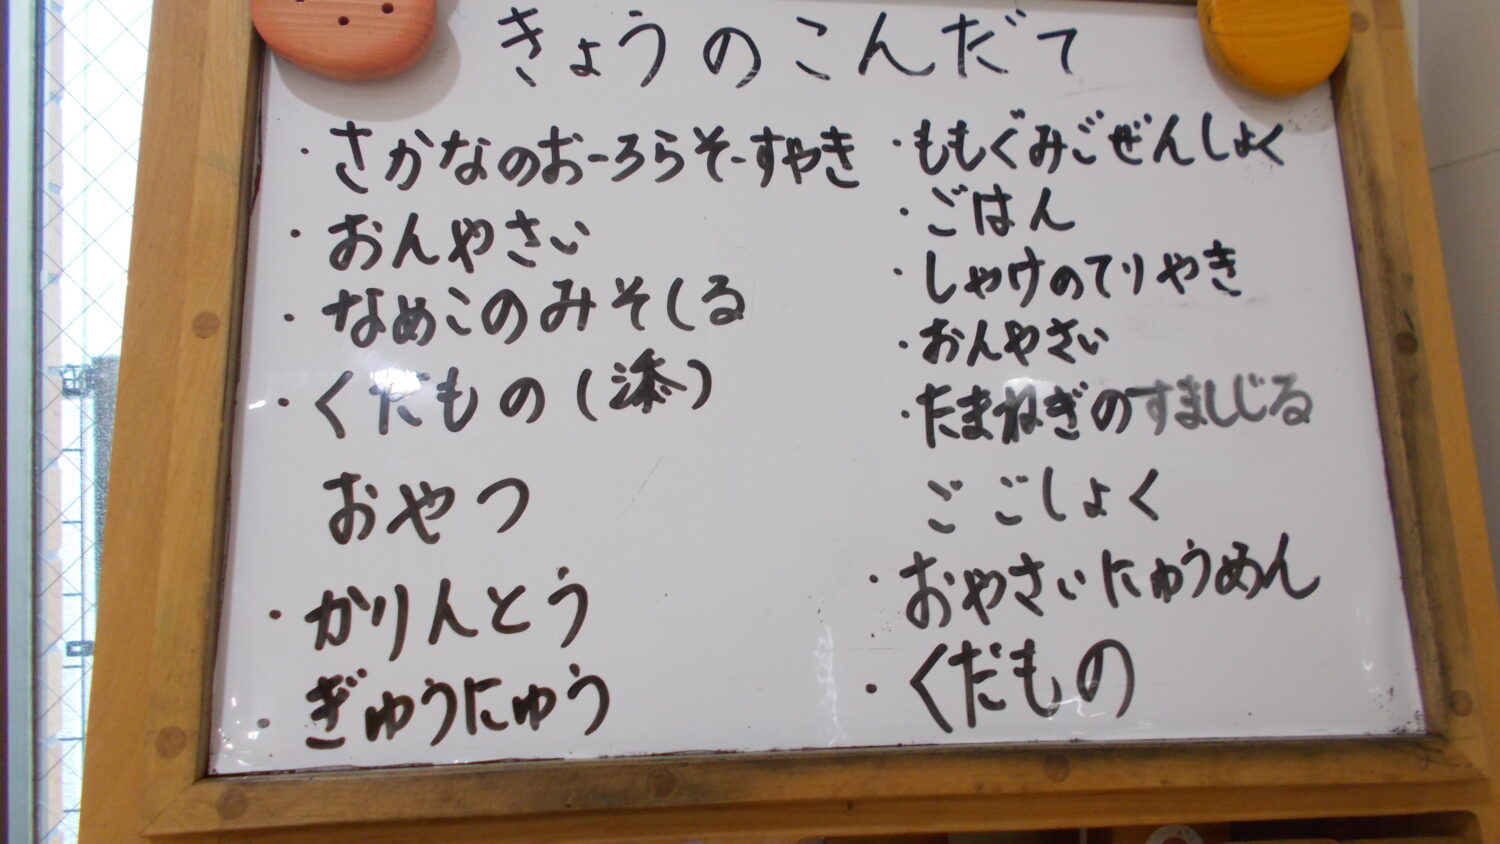 きょうのこんだて
・さかなのおーろらそーすやき
・おんやさい
・なめこのみそしる
・くだもの(添)
おやつ
・かりんとう
・ぎゅうにゅう
・ももぐみごぜんしょく
・ごはん
・しゃけのてりやき
・おんやさい
・たまねぎのすましじる
ごごしょく
・おやさいにゅうめん
・くだもの